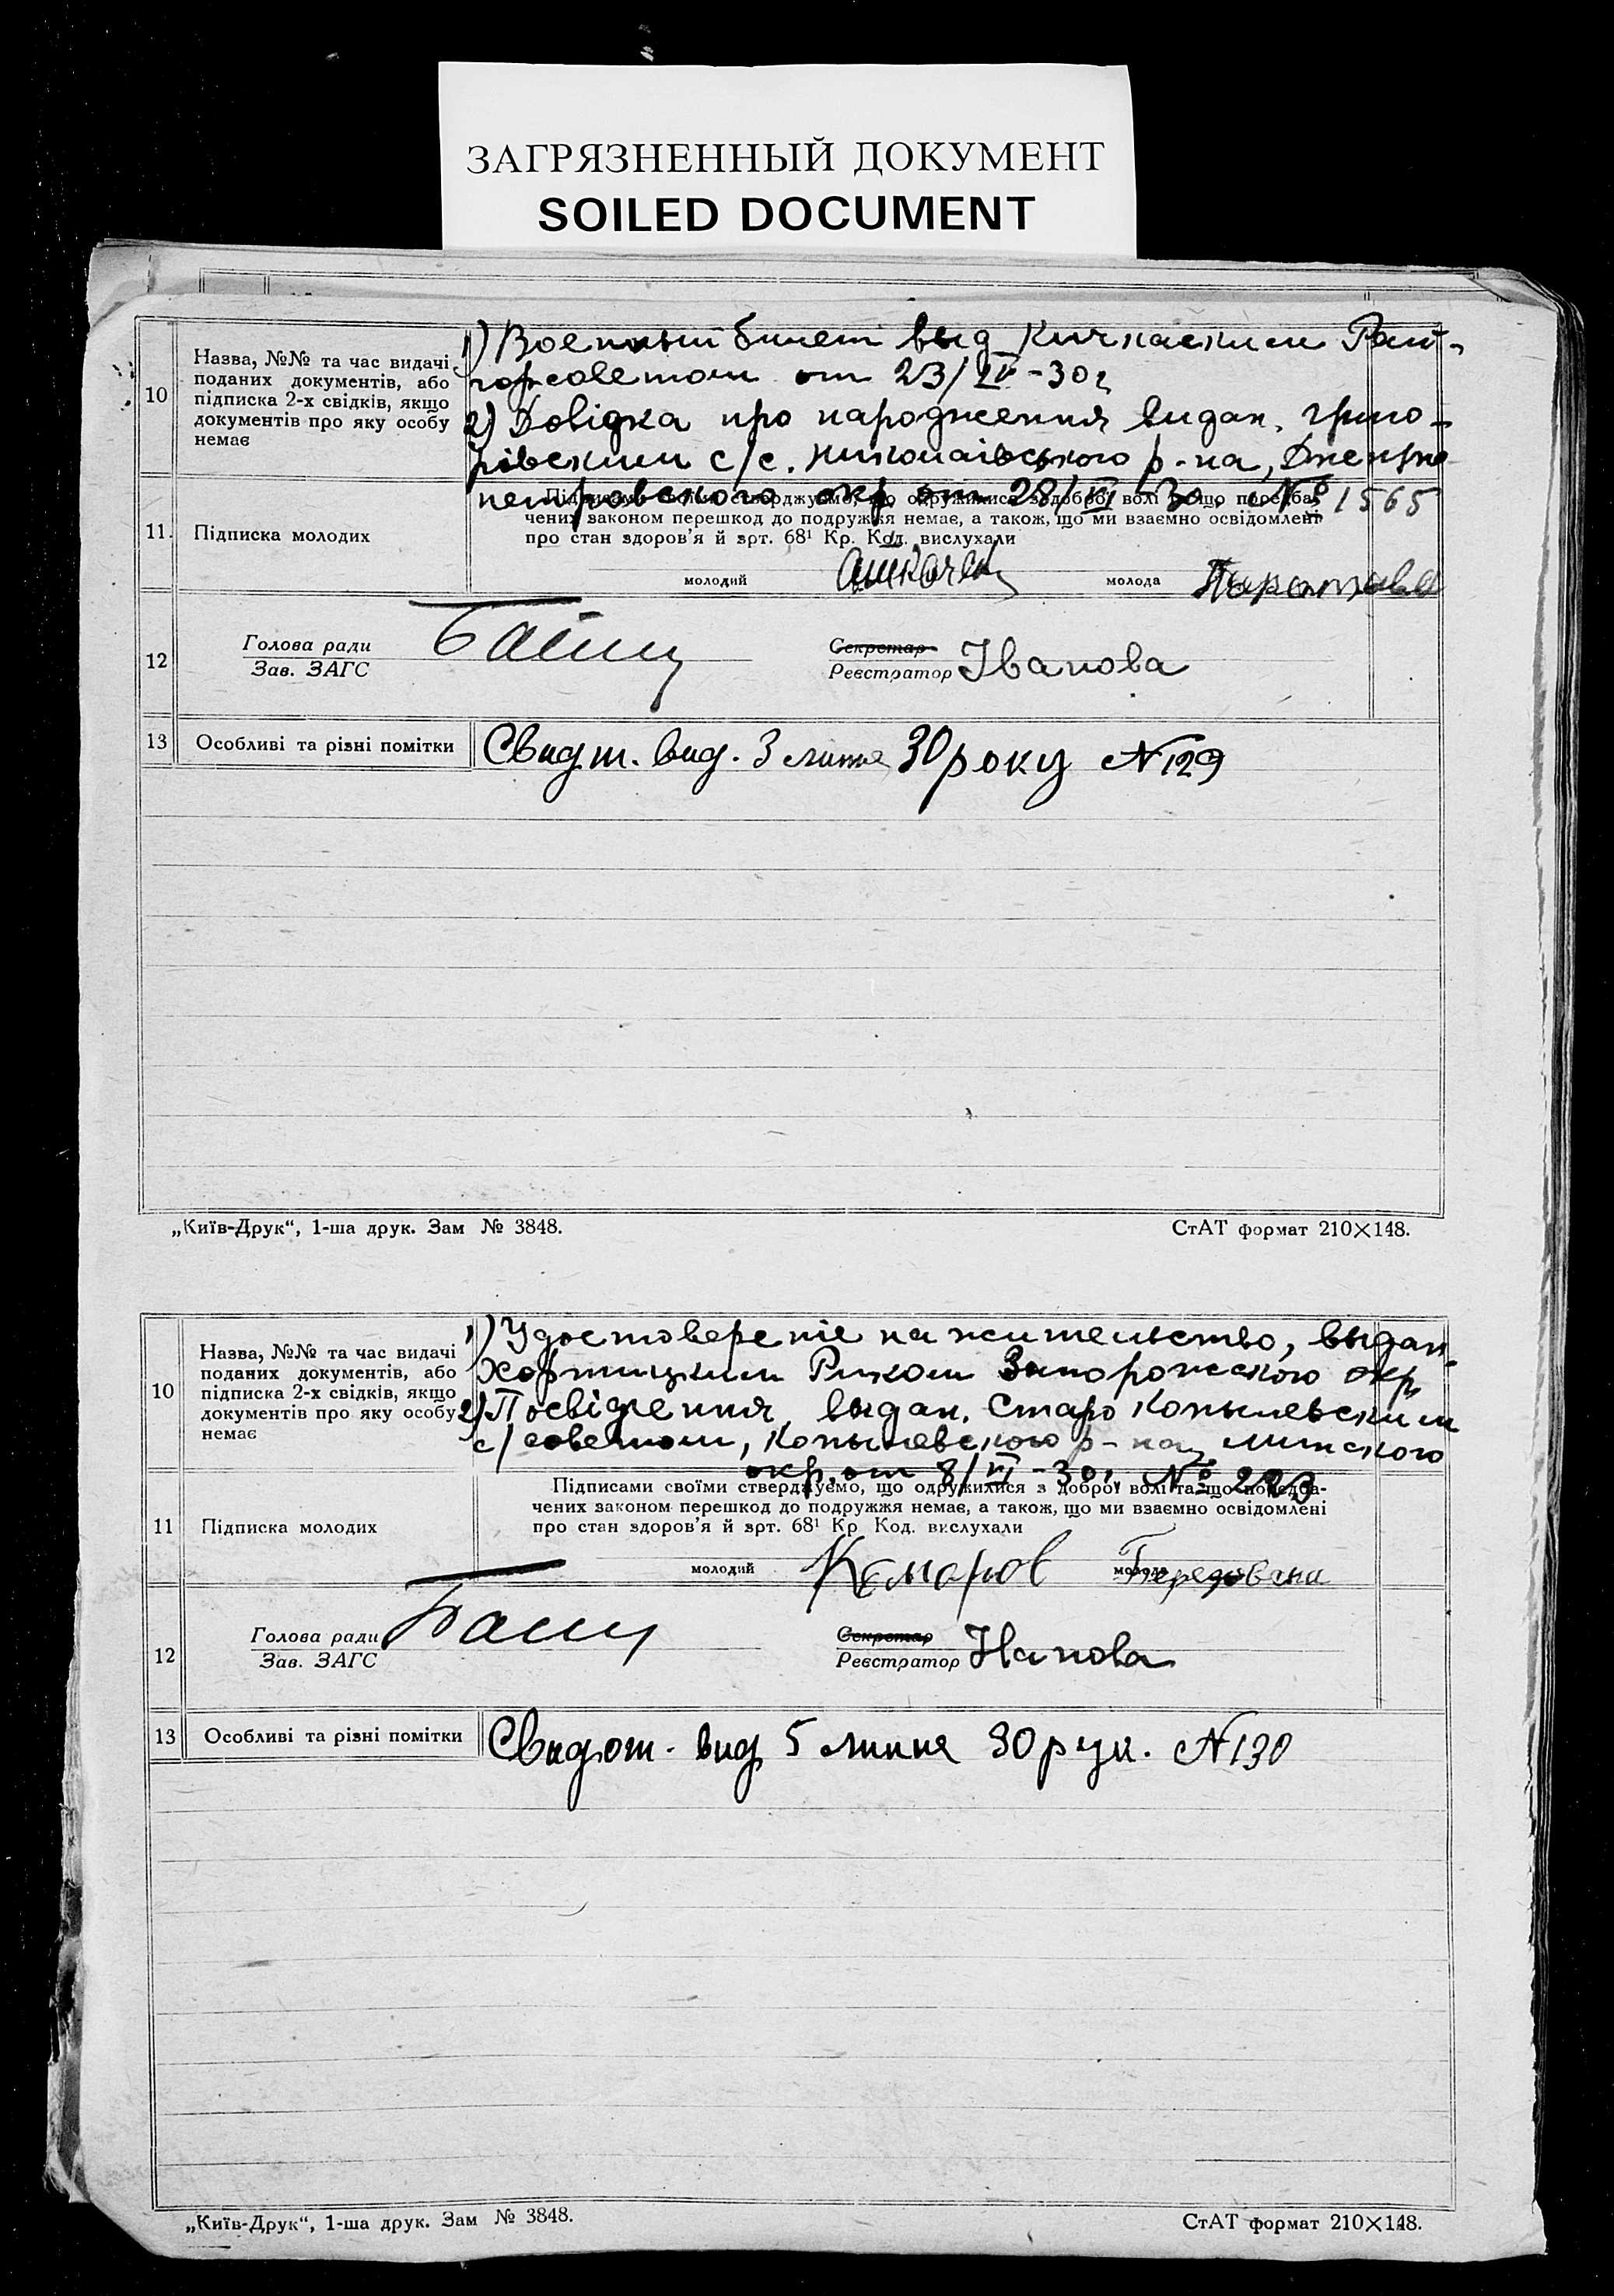 ЗАГРЯЗНЕННЫЙ ДОКУМЕНТ
SOILED DOCUMENT
10
Назва, №№ та час видачі
поданих документів, або
підписка 2-х свідків, якщо
документів про яку особу
немає
1) Военный билет выд Кичкаским Рай-
горсоветом от 23/IV-30г
2) Довідка про народження видан. григо-
рівским с/с. Николаівського р-на, Днепро
петровского окр от 28/VI 30 № 1565
11.
Підписка молодих
Підписами своїми стверджуємо, що одружилися з доброї волі та що передба-
чених законом перешкод до подружжя немає, а також, що ми взаємно освідомлені
про стан здоров'я й арт. 68¹ Кр. Код. вислухали
молодий
молода
12
Голова ради
Зав. ЗАГС
Секретар
Реєстратор Іванова
13
Особливі та різні помітки
Свидт. вид. 3 липня 30 року № 129
„Київ-Друк“, 1-ша друк. Зам № 3848.
СтАТ формат 210×148.
10
Назва, №№ та час видачі
поданих документів, або
підписка 2-х свідків, якщо
документів про яку особу
немає
1) Удостоверение на жительство, выдан.
Хортицким Риком Запорожского окр
2) Посвідчення, выдан. Старо Копылевским
с/советом, Копылевского р-на, Минского
окр. от 8/VI-30г. № 223
11
Підписка молодих
Підписами своїми стверджуємо, що одружилися з доброї волі та що передба-
чених законом перешкод до подружжя немає, а також, що ми взаємно освідомлені
про стан здоров'я й арт. 68¹ Кр Код. вислухали
молодий Комаров
молода
12
Голова ради
Зав. ЗАГС
Секретар
Реєстратор Іванова
13
Особливі та різні помітки
Свидот. вид 5 липня 30 рук. № 130
„Київ-Друк“, 1-ша друк. Зам № 3848.
СтАТ формат 210×148.